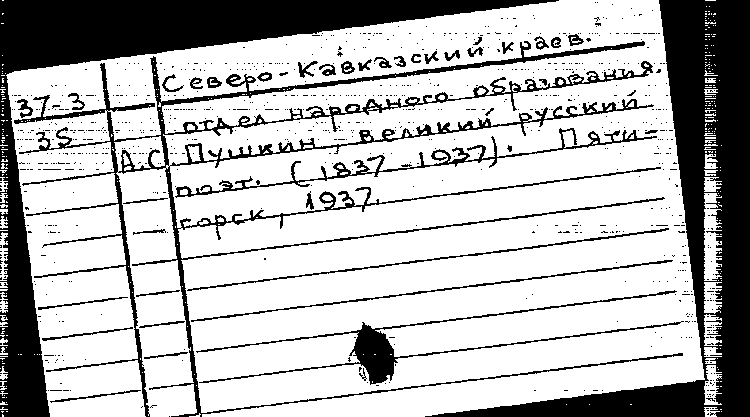 Северо-Кавказский краев.
37-3
отдел народного образования.
35
А.С. Пушкин, великий русский
поэт. (1837-1937). Пяти-
горск, 1937.